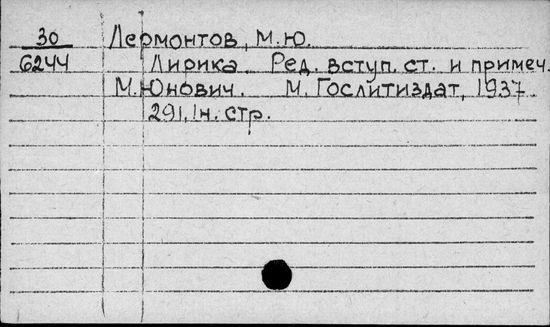 30 Лермонтов, М.Ю.
6244 Лирика Ред. вступ. ст. и примеч.
М. Юнович. М. Гослитиздат, 1937
291, 1н. стр.